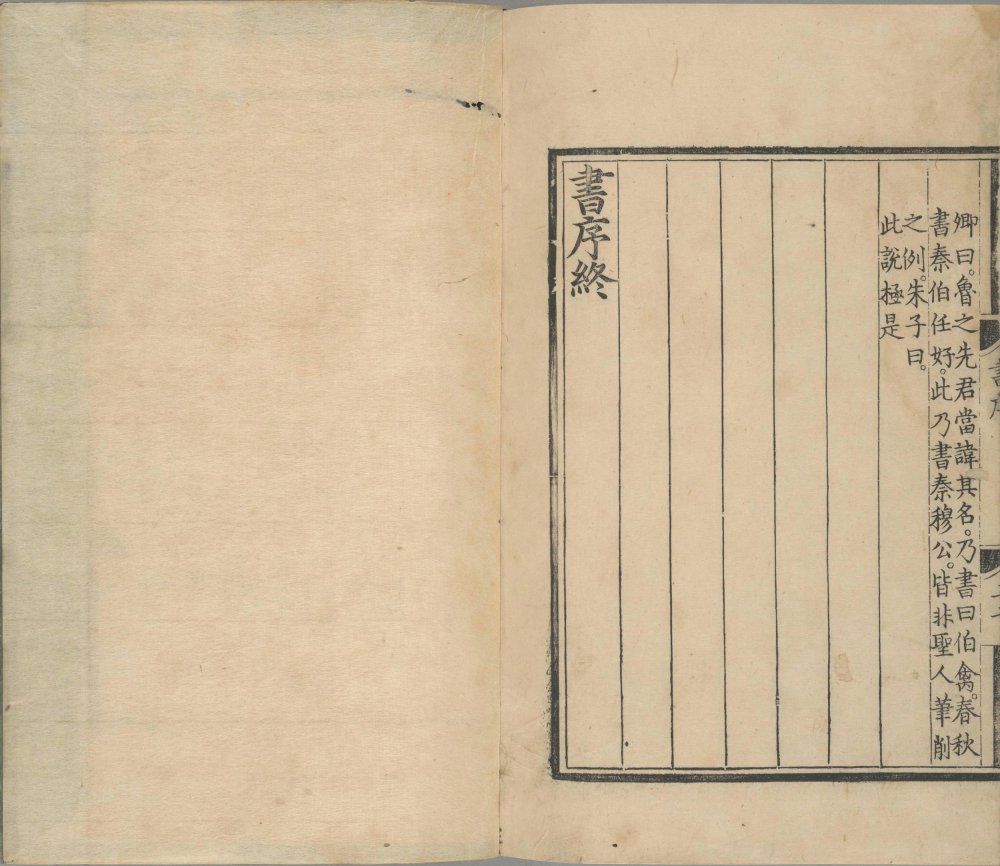 卿曰。魯之先君當諱其名。乃書曰伯禽。春秋
書秦伯任好。此乃書秦穆公。皆非聖人筆削
之例。朱子曰。
此說極是
書序終
書序